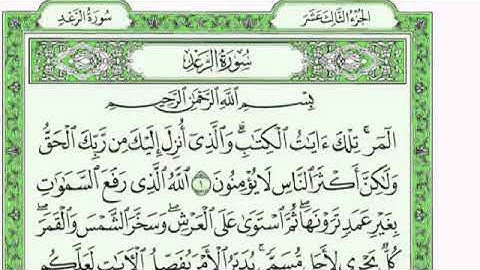 الجزء الثالث عشر
سورة الرعد
سُورَةُ الرَّعْدِ
بِسْمِ اللَّهِ الرَّحْمَٰنِ الرَّحِيمِ
الٓمٓرۚ تِلْكَ ءَايَٰتُ ٱلْكِتَٰبِۗ وَٱلَّذِىٓ أُنزِلَ إِلَيْكَ مِن رَّبِّكَ ٱلْحَقُّ
وَلَٰكِنَّ أَكْثَرَ ٱلنَّاسِ لَا يُؤْمِنُونَ ١ ٱللَّهُ ٱلَّذِى رَفَعَ ٱلسَّمَٰوَٰتِ
بِغَيْرِ عَمَدٍ تَرَوْنَهَاۖ ثُمَّ ٱسْتَوَىٰ عَلَى ٱلْعَرْشِۖ وَسَخَّرَ ٱلشَّمْسَ وَٱلْقَمَرَۖ
كُلٌّ يَجْرِى لِأَجَلٍ مُّسَمًّىۚ يُدَبِّرُ ٱلْأَمْرَ يُفَصِّلُ ٱلْءَايَٰتِ لَعَلَّكُم